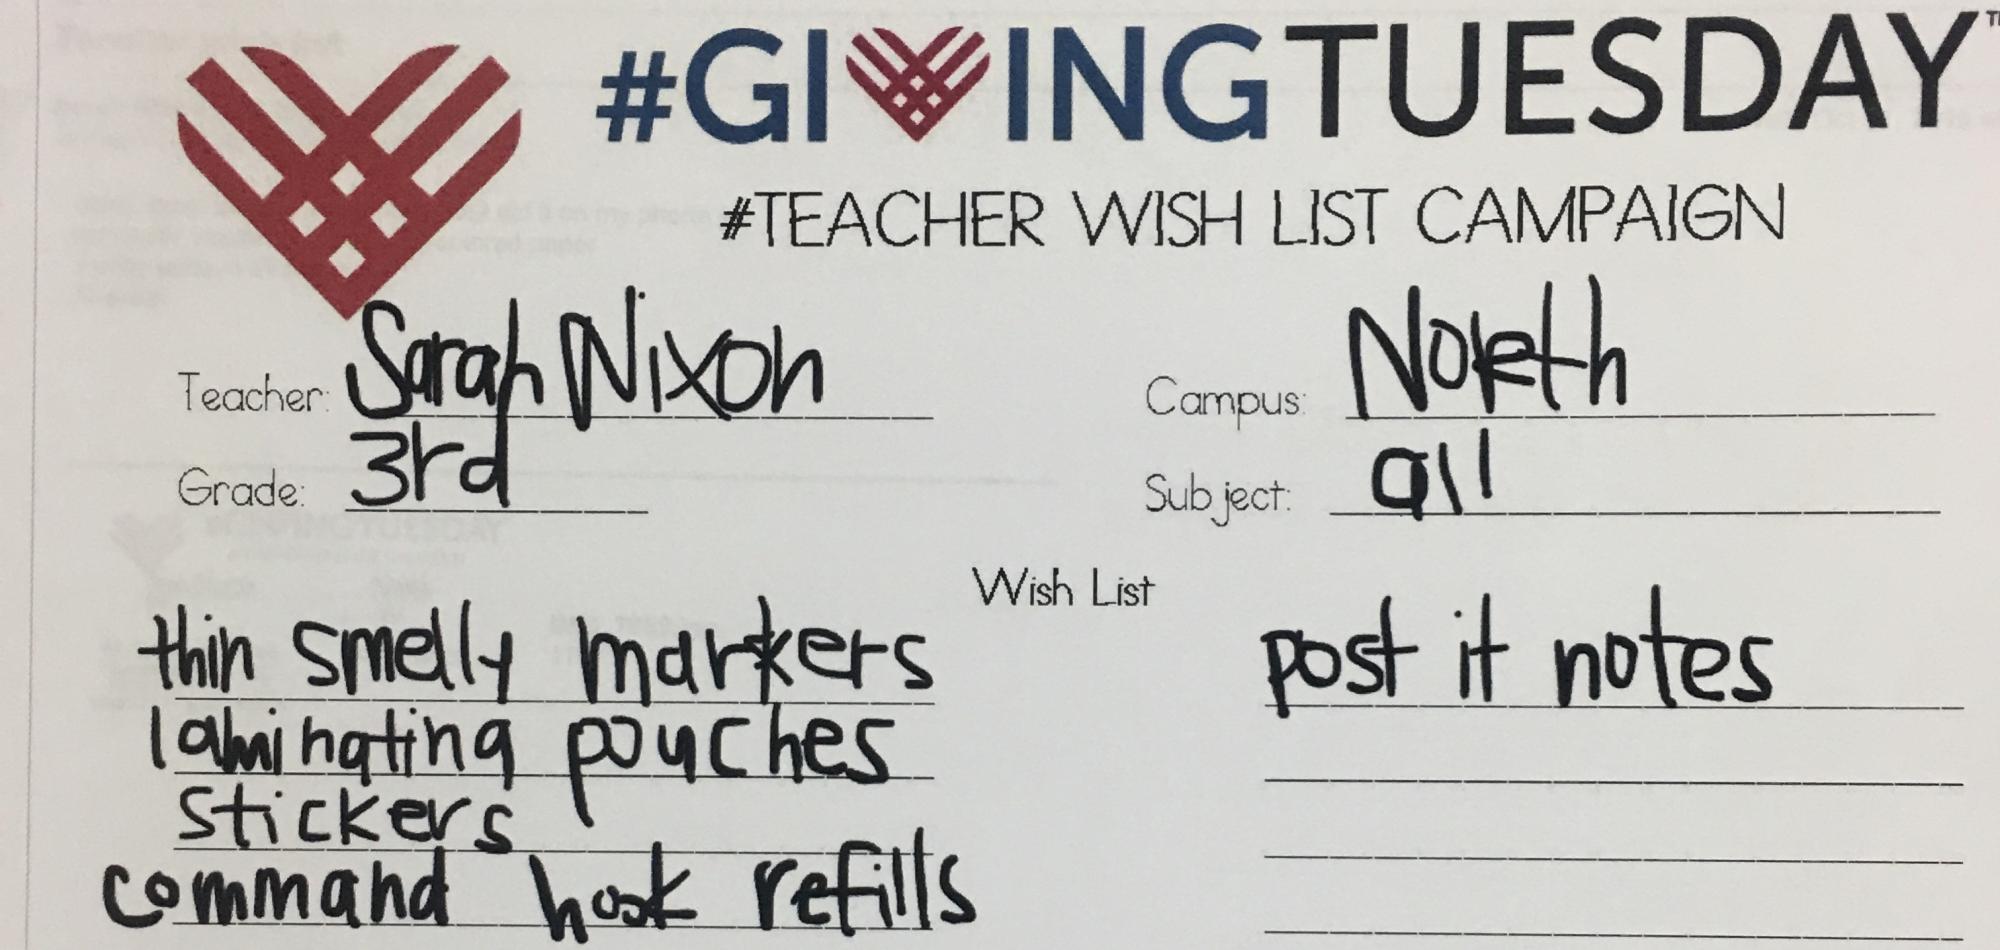 #GIVINGTUESDAY™
#TEACHER WISH LIST CAMPAIGN
Teacher: Sarah Nixon
Campus: North
Grade: 3rd
Subject: all
Wish List
thin smelly markers
post it notes
laminating pouches
stickers
command hook refills